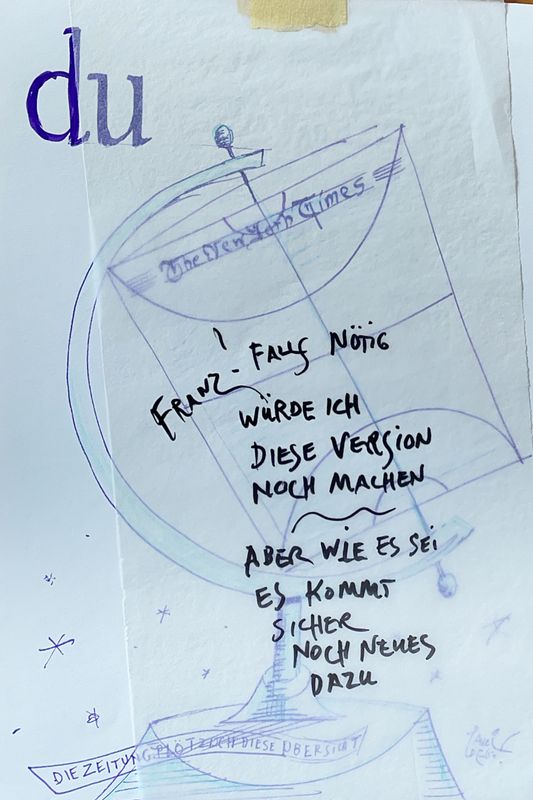 du
The New York Times
FRANZ - FALLS NÖTIG
WÜRDE ICH
DIESE VERSION
NOCH MACHEN
ABER WIE ES SEI
ES KOMMT
SICHER
NOCH NEUES
DAZU
DIE ZEITUNG. PLÖTZLICH DIESE ÜBERSICHT